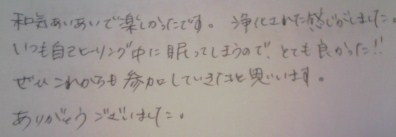 和気あいあいで楽しかったです。浄化された感じがしました。
いつも自己ヒーリング中に眠ってしまうので、とても良かった!!
ぜひこれからも参加していきたいと思います。
ありがとうございました。